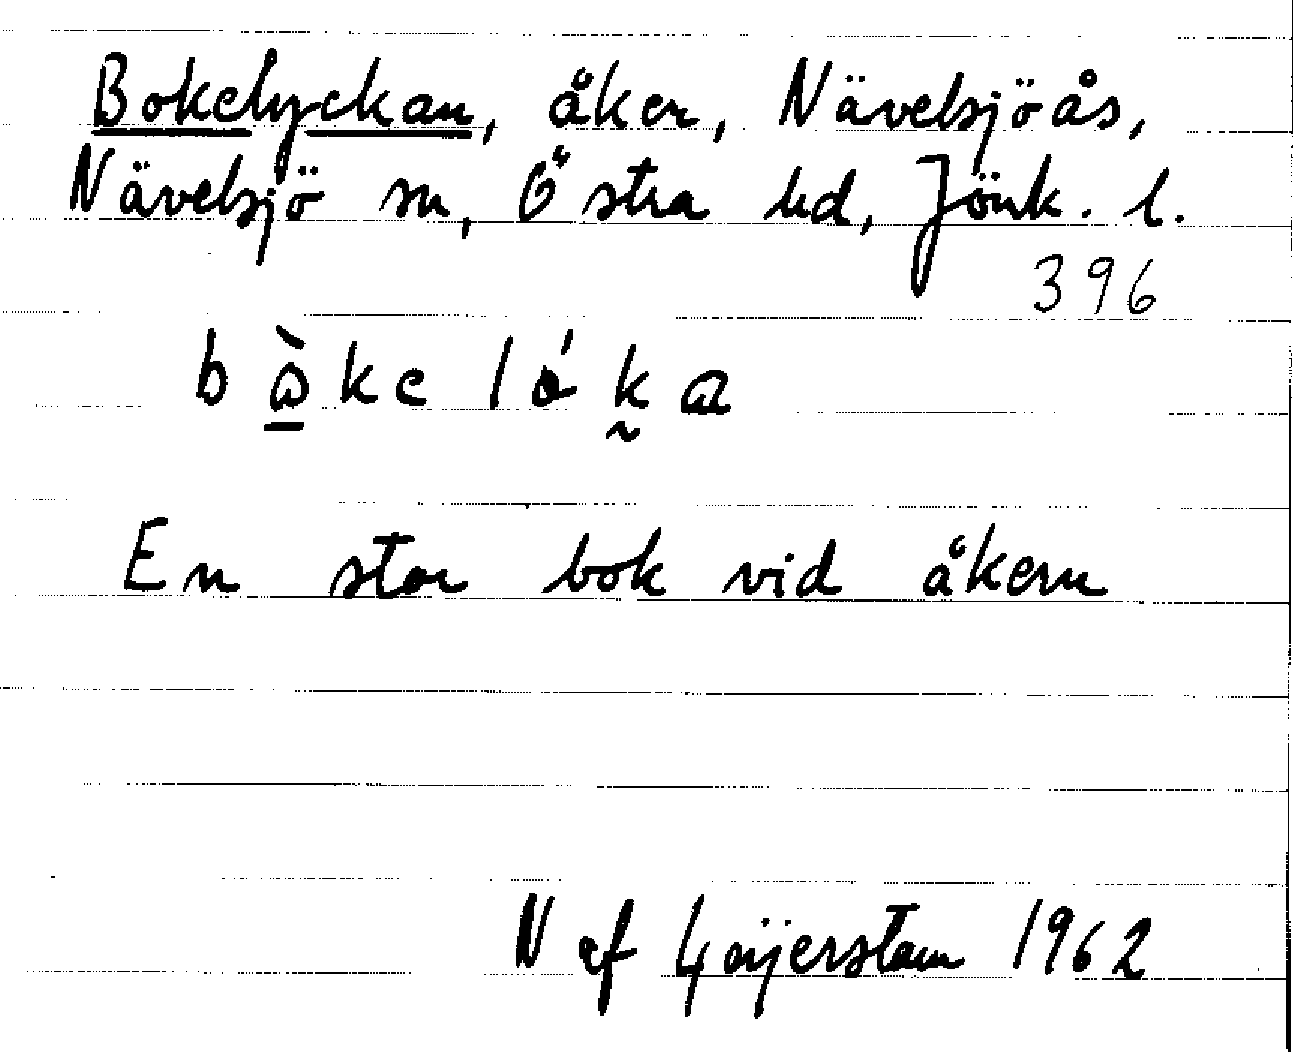 Bokelyckan, åker, Nävelsjöås,
Nävelsjö sn, Östra hd, Jönk. l.
396
En stor bok vid åkern
N af Geijerstam 1962